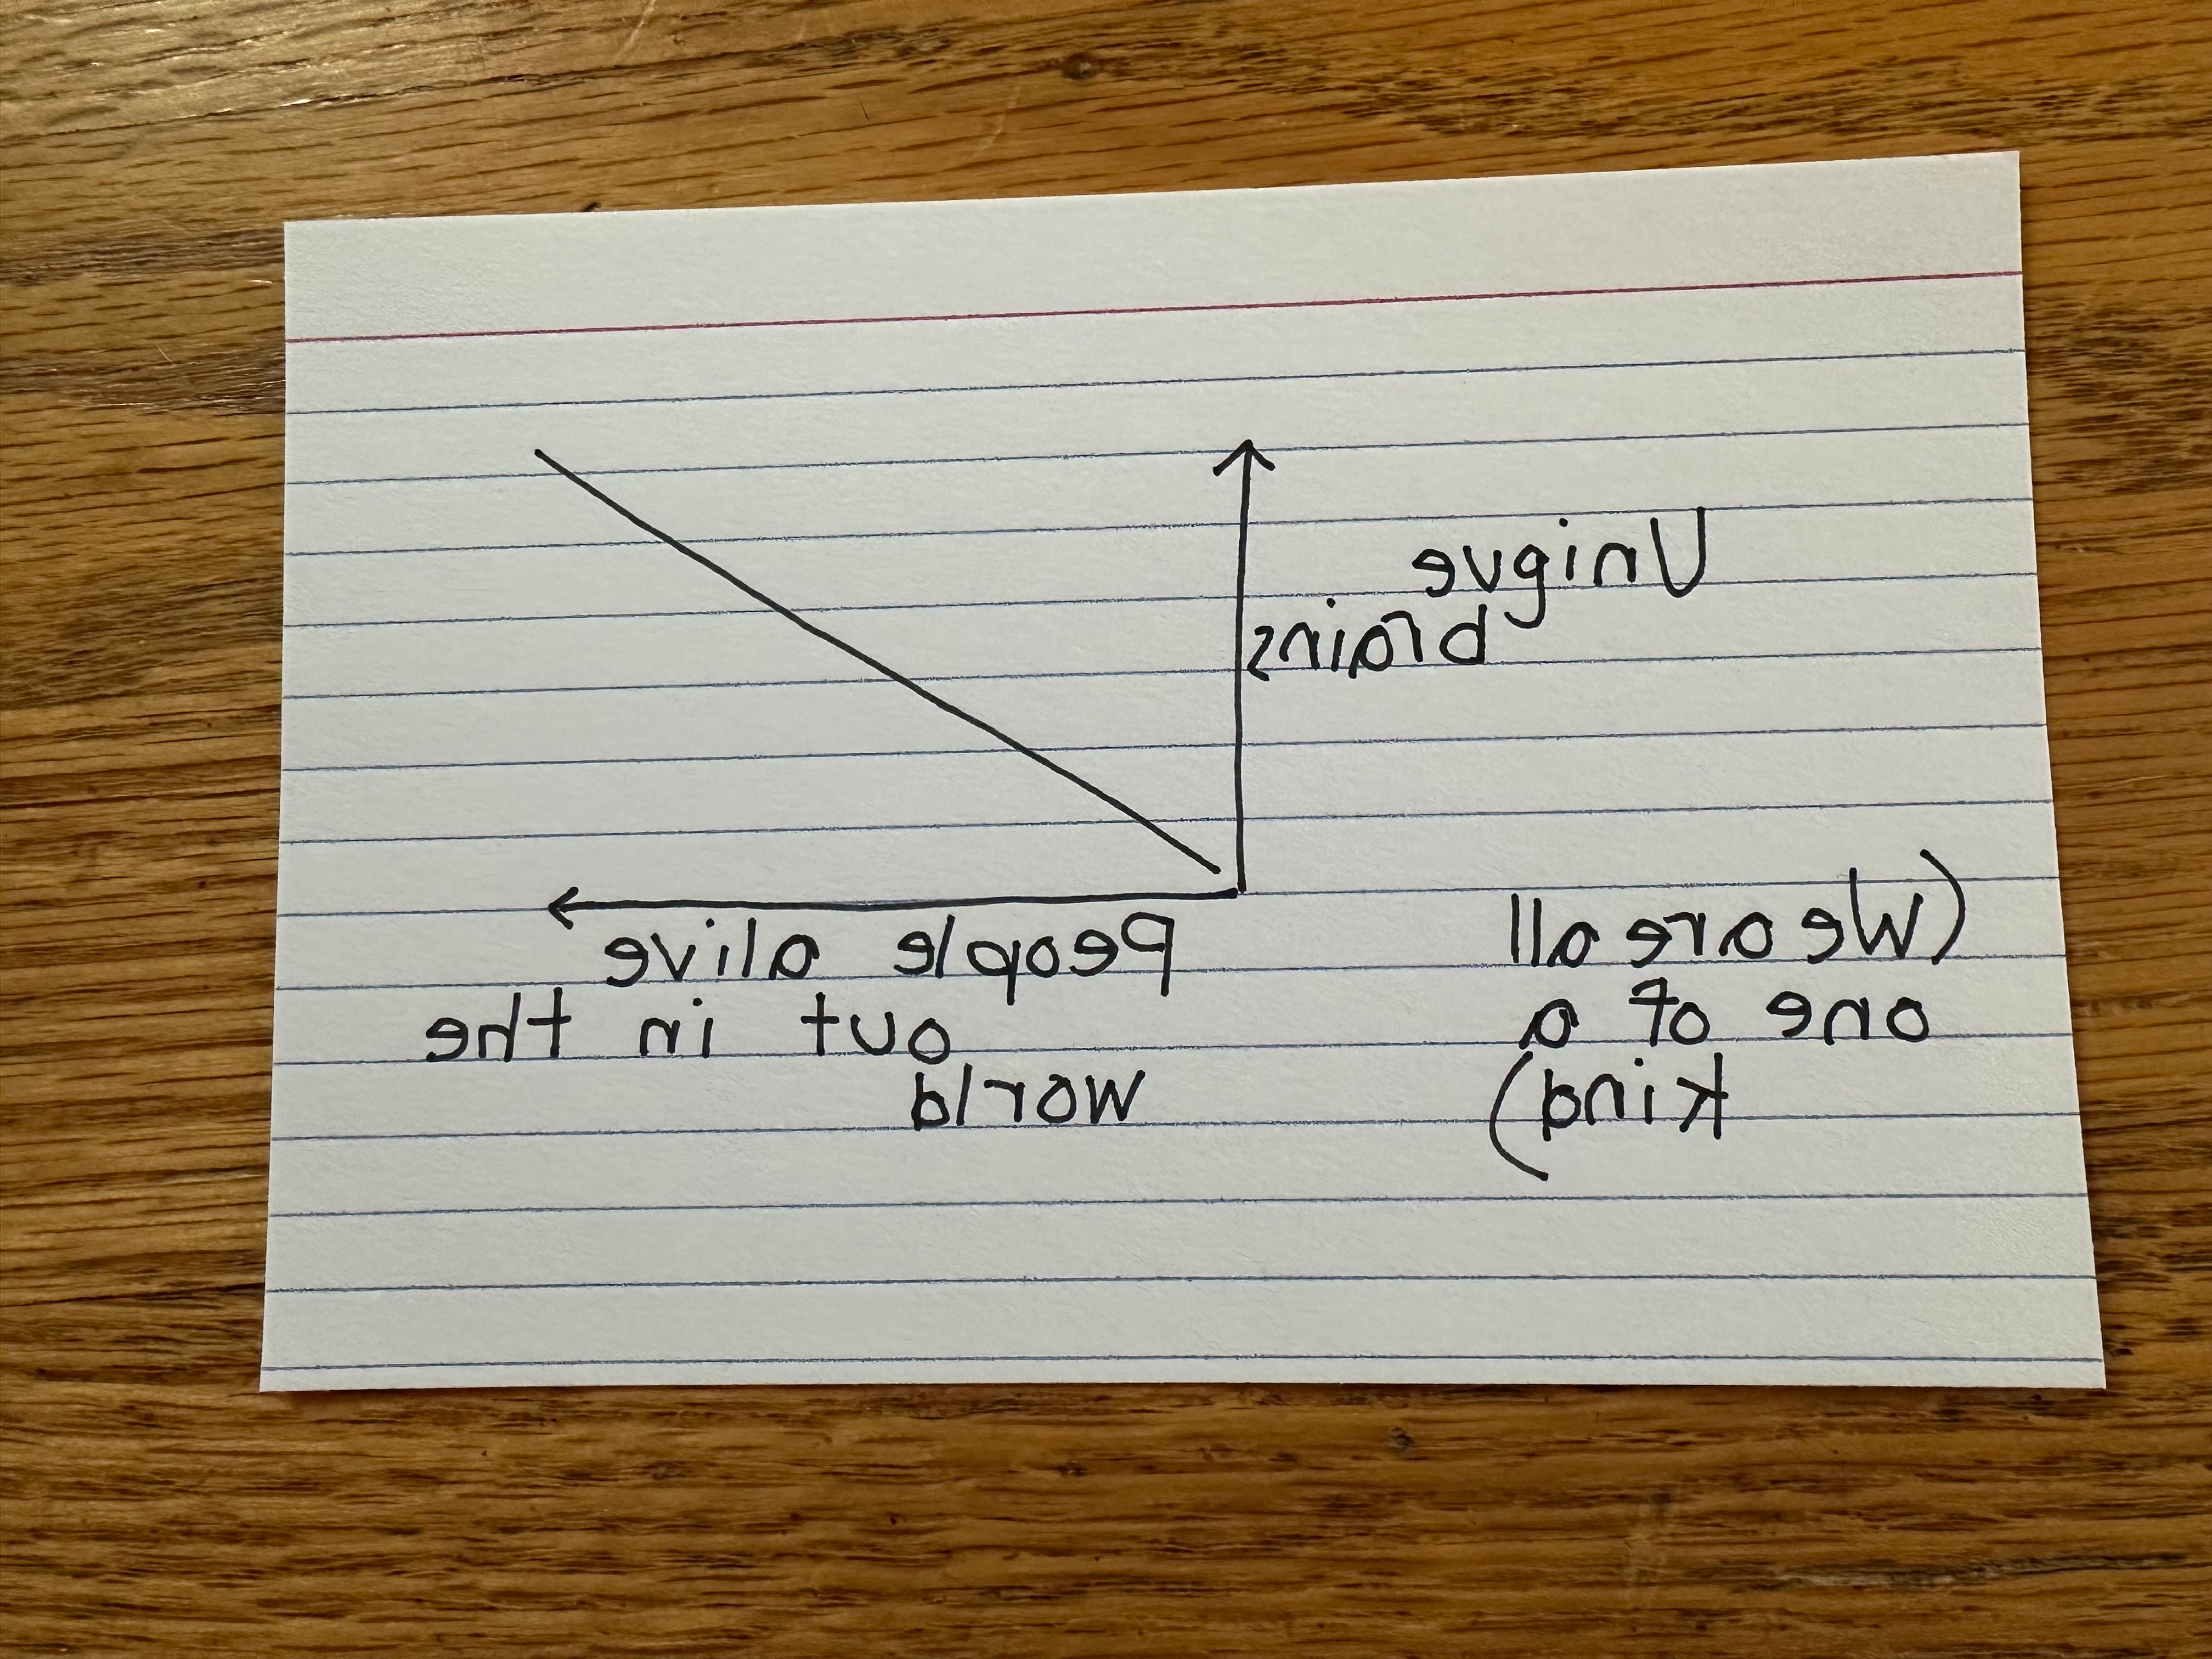 Unique
brains
(We are all
one of a
kind)
People alive
out in the
world